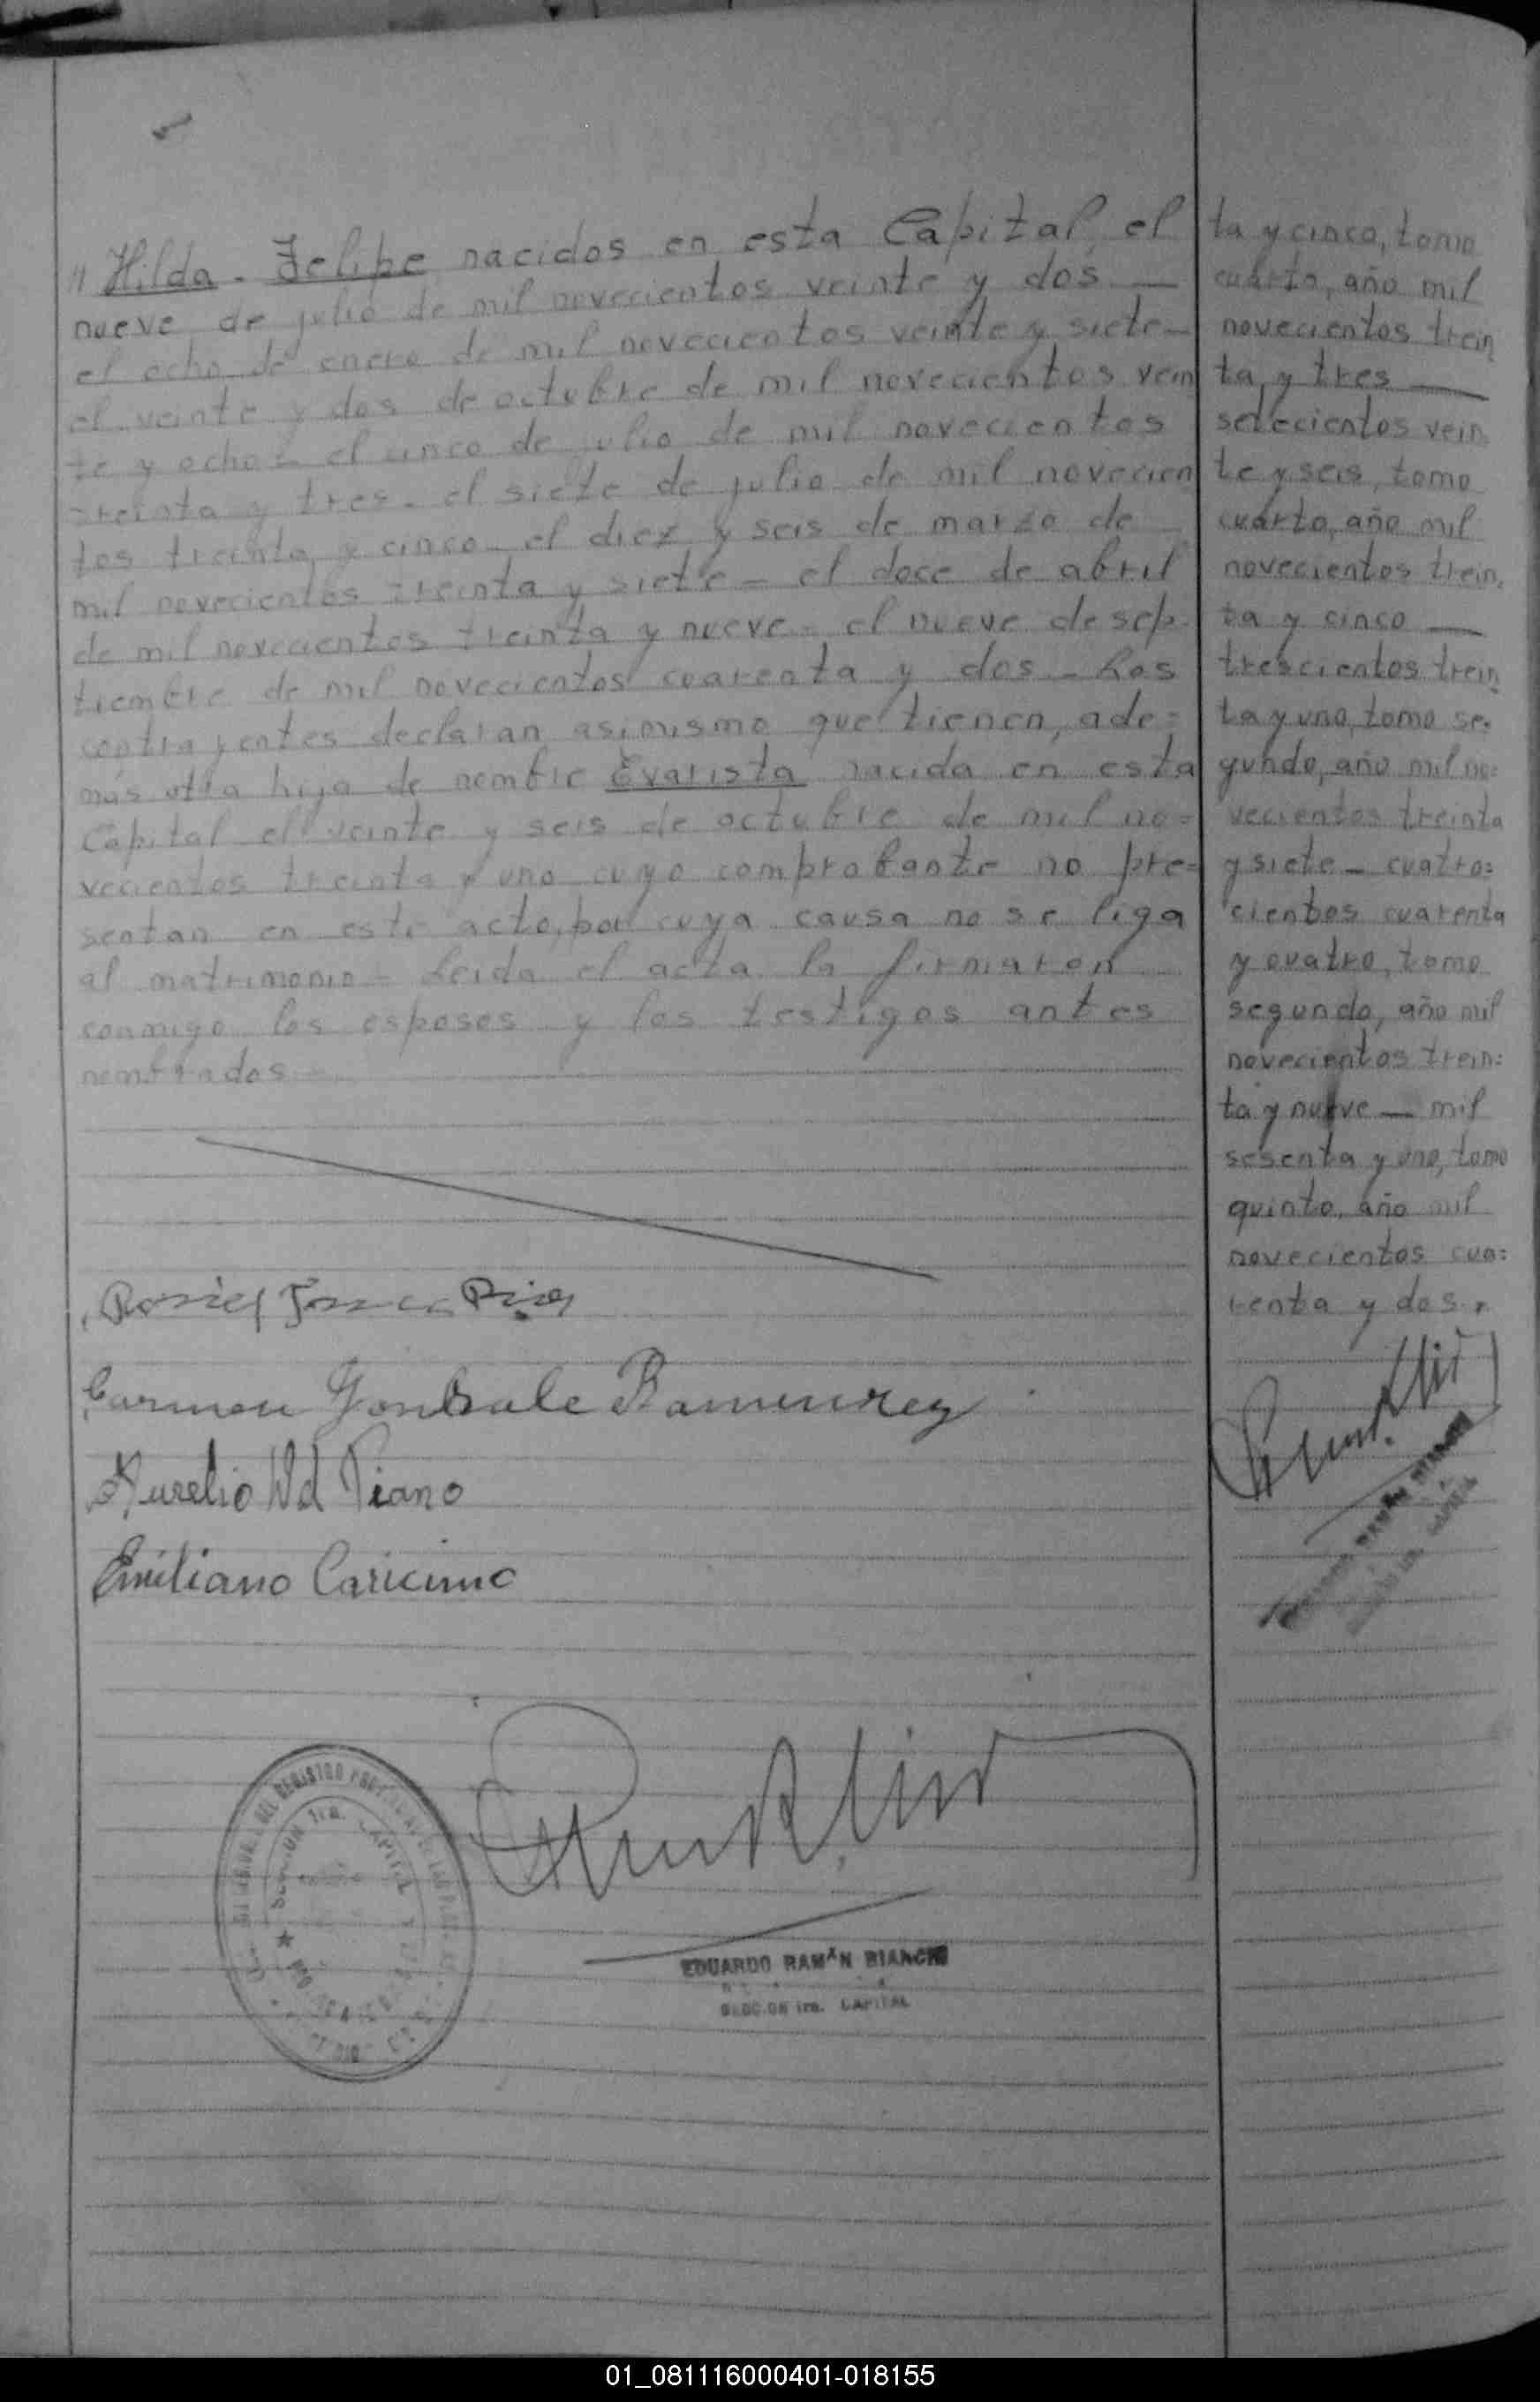 " Hilda - Felipe nacidos en esta Capital, el
nueve de julio de mil novecientos veinte y dos —
el ocho de enero de mil novecientos veinte y siete —
el veinte y dos de octubre de mil novecientos vein
te y ocho - el cinco de julio de mil novecientos
treinta y tres - el siete de julio de mil novecien
tos treinta y cinco - el diez y seis de marzo de
mil novecientos treinta y siete - el doce de abril
de mil novecientos treinta y nueve - el nueve de sep-
tiembre de mil novecientos cuarenta y dos - Los
contrayentes declaran asimismo que tienen, ade=
más otra hija de nombre Evarista nacida en esta
Capital el veinte y seis de octubre de mil no=
vecientos treinta y uno cuyo comprobante no pre=
sentan en este acto, por cuya causa no se liga
al matrimonio - Leida el acta la firmaron
conmigo los esposos y los testigos antes
nombrados -
Carmen Gonsale Ramirez
Aurelio Del Piano
Emiliano
EDUARDO RAMÓN BIANCHI
SECCION 1ra. CAPITAL
DEL REGISTRO
SECCION 1ra. CAPITAL
ta y cinco, tomo
cuarto, año mil
novecientos trein
ta y tres —
setecientos vein
te y seis, tomo
cuarto, año mil
novecientos trein,
ta y cinco —
trescientos trein
ta y uno, tomo se-
gundo, año mil no=
vecientos treinta
y siete - cuatro=
cientos cuarenta
y cuatro, tomo
segundo, año mil
novecientos trein=
ta y nueve — mil
sesenta y uno, tomo
quinto, año mil
novecientos cua=
renta y dos.
RAMÓN BIANCHI
01_081116000401-018155